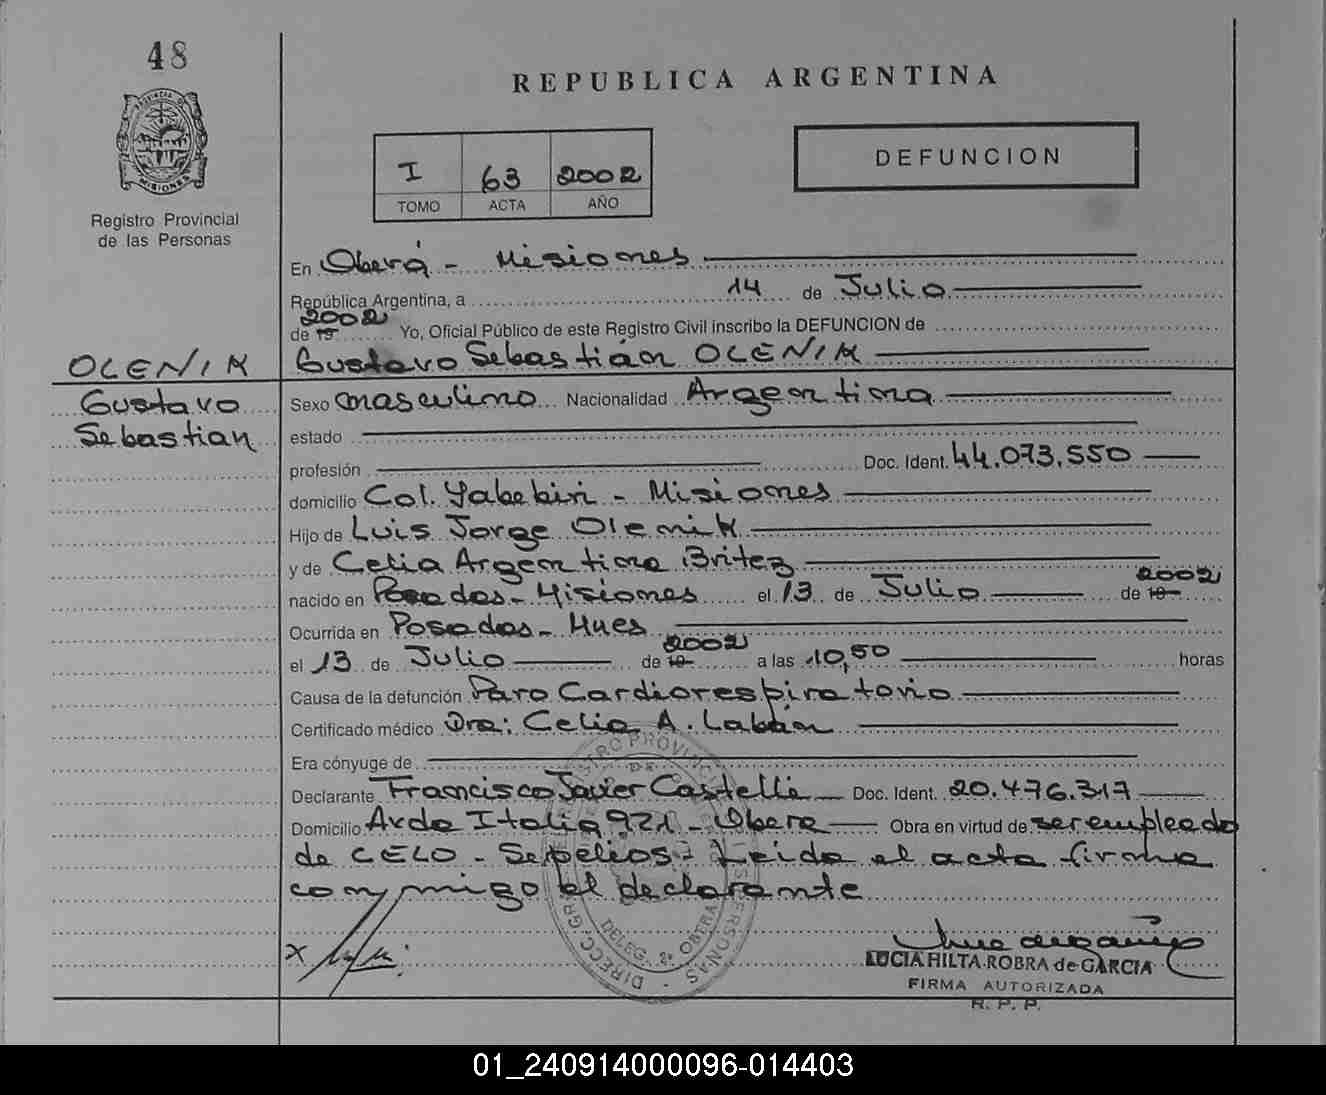 48
REPUBLICA ARGENTINA
PROVINCIA DE
MISIONES
Registro Provincial
de las Personas
DEFUNCION
I 63 2002
TOMO ACTA AÑO
En Oberá - Misiones
República Argentina, a 14 de Julio
2002
de 19 Yo, Oficial Público de este Registro Civil inscribo la DEFUNCION de
OLENIK
Gustavo Sebastián OLENIK
Gustavo
Sebastian
Sexo masculino Nacionalidad Argentina
estado
profesión Doc. Ident. 44.073.550
domicilio Col. Yabebiri - Misiones
Hijo de Luis Jorge Olenik
y de Celia Argentina Britez
nacido en Posadas - Misiones el 13 de Julio de 19 2002
Ocurrida en Posadas - Mnes
el 13 de Julio de 19 2002 a las 10,50 horas
Causa de la defunción Paro Cardiorespiratorio
Certificado médico Dra: Celia A. Labán
Era cónyuge de
Declarante Francisco Javier Castelli Doc. Ident. 20.476.317
Domicilio Avda Italia 921 - Obera Obra en virtud de ser empleado
de CELO - Sepelios - Leida el acta firma
conmigo el declarante
X
LUCIA HILTA ROBRA de GARCIA
FIRMA AUTORIZADA
R. P. P.
01_240914000096-014403